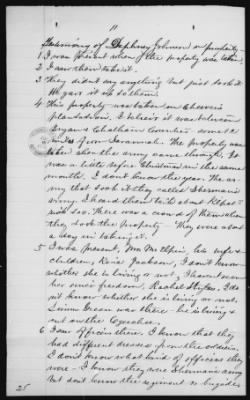 11
Testimony of Daphney Johnson on property—
1. I was present when the property was taken,
2 I saw them take it.
3 They didn't say anything but just took it
We gave it up to them.
4 This property was taken on Cheeves
plantation. I believe it was between
Bryan & Chatham Counties some
miles from Savannah. The property was
taken when the army came through. It
was a little before Christmas in the same
month. I don't know the year. The ar-
my that took it they called Sherman's
army. I heard them talk about Kilpat-
rick too. There was a crowd of them when
they took the property— They were about
a day in taking it.
5 I was present, Mr McAlpin, his wife &
children, Jackson, I don't know
whether she is living or not, I haven't seen
her since freedom, Rachel I do
not know whether she is living or not.
Green was there— he is living &
out on the
6 I saw Officers there, I know that they
had different dresses from the soldiers.
I don't know what kind of officers they
were— I know they were Sherman's army
but don't know the regiment or brigades
25